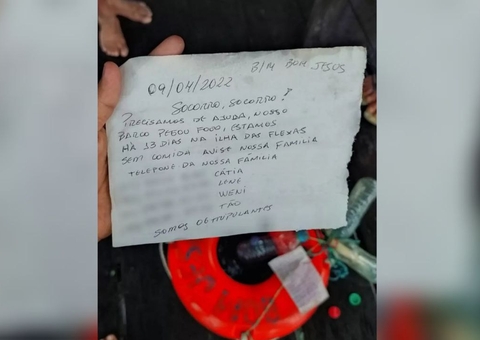 B/M BOM JESUS
09/04/2022
SOCORRO, SOCORRO!
PRECISAMOS DE AJUDA, NOSSO
BARCO PEGOU FOGO, ESTAMOS
HÁ 13 DIAS NA ILHA DAS FLEXAS
SEM COMIDA AVISE NOSSA FAMILIA
TELEFONE DA NOSSA FAMÍLIA
CÁTIA
LENE
WENI
TÃO
SOMOS